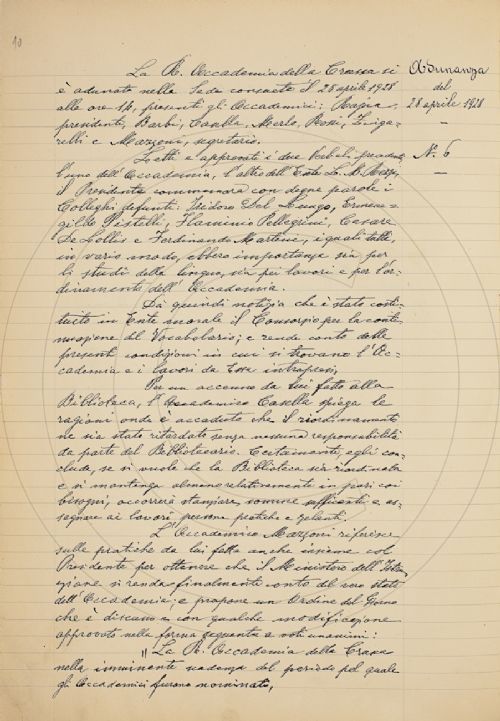 10
La R. Accademia della Crusca si
è adunata nella Sede consueta il 28 aprile 1928
alle ore 14, presenti gli Accademici: Rajna
presidente, Barbi, Casella, Merlo, Rossi, Zinga-
relli e Mazzoni, segretario.
Adunanza
del
28 aprile 1928
—
Letti e approvati i due verbali precedenti,
l'uno dell'Accademia, l'altro dell'Ente
il Presidente commemora con degne parole i
Colleghi defunti: Isidoro Del Lungo, Ermene-
gildo Pistelli, Flaminio Pellegrini, Cesare
De Lollis e Ferdinando Martini, i quali tutti,
in vario modo, ebbero importanza sia per
lo studio della lingua, sia pei lavori e per l'or-
dinamento dell'Accademia.
N.º 6
—
Dà quindi notizia che è stato costi-
tuito in Ente morale il Consorzio per la conti-
nuazione del Vocabolario; e rende conto delle
presenti condizioni in cui si trovano l'Ac-
cademia e i lavori da Essa intrapresi.
Per un accenno da lui fatto alla
Biblioteca, l'Accademico Casella spiega le
ragioni onde è accaduto che il riordinamento
ne sia stato ritardato senza nessuna responsabilità
da parte del Bibliotecario. Certamente, egli con-
clude, se si vuole che la Biblioteca sia riordinata
e si mantenga almeno relativamente in pari coi
bisogni, occorrerà stanziare somme sufficienti e as-
segnare ai lavori persone pratiche e zelanti.
L'Accademico Mazzoni riferisce
sulle pratiche da lui fatte anche insieme col
Presidente per ottenere che il Ministero dell'Istru-
zione si renda finalmente conto del vero stato
dell'Accademia; e propone un Ordine del Giorno
che è discusso e con qualche modificazione
approvato nella forma seguente a voti unanimi:
"La R. Accademia della Crusca
nella imminente scadenza del periodo pel quale
gli Accademici furono nominati,